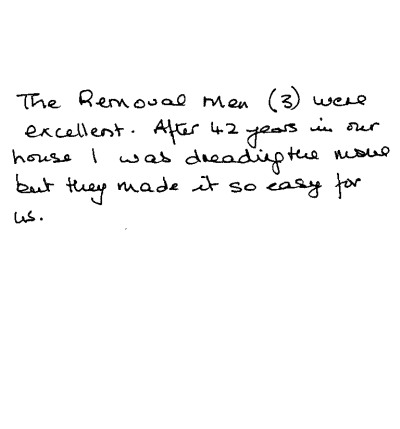 The Removal Men (3) were
excellent. After 42 years in our
house I was dreading the move
but they made it so easy for
us.